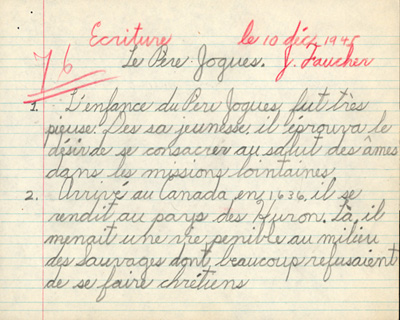 Ecriture le 10 déc. 1945
76 Le Père Jogues. J. Faucher
1. L'enfance du Père Jogues, fut très
pieuse. Dès sa jeunesse, il éprouva le
désir de se consacrer au salut des âmes
dans les missions lointaines.
2. Arrivé au Canada, en 1636, il se
rendit au pays des Huron. Là, il
menait une vie penible au milieu
des sauvages dont, beaucoup refusaient
de se faire chrétiens